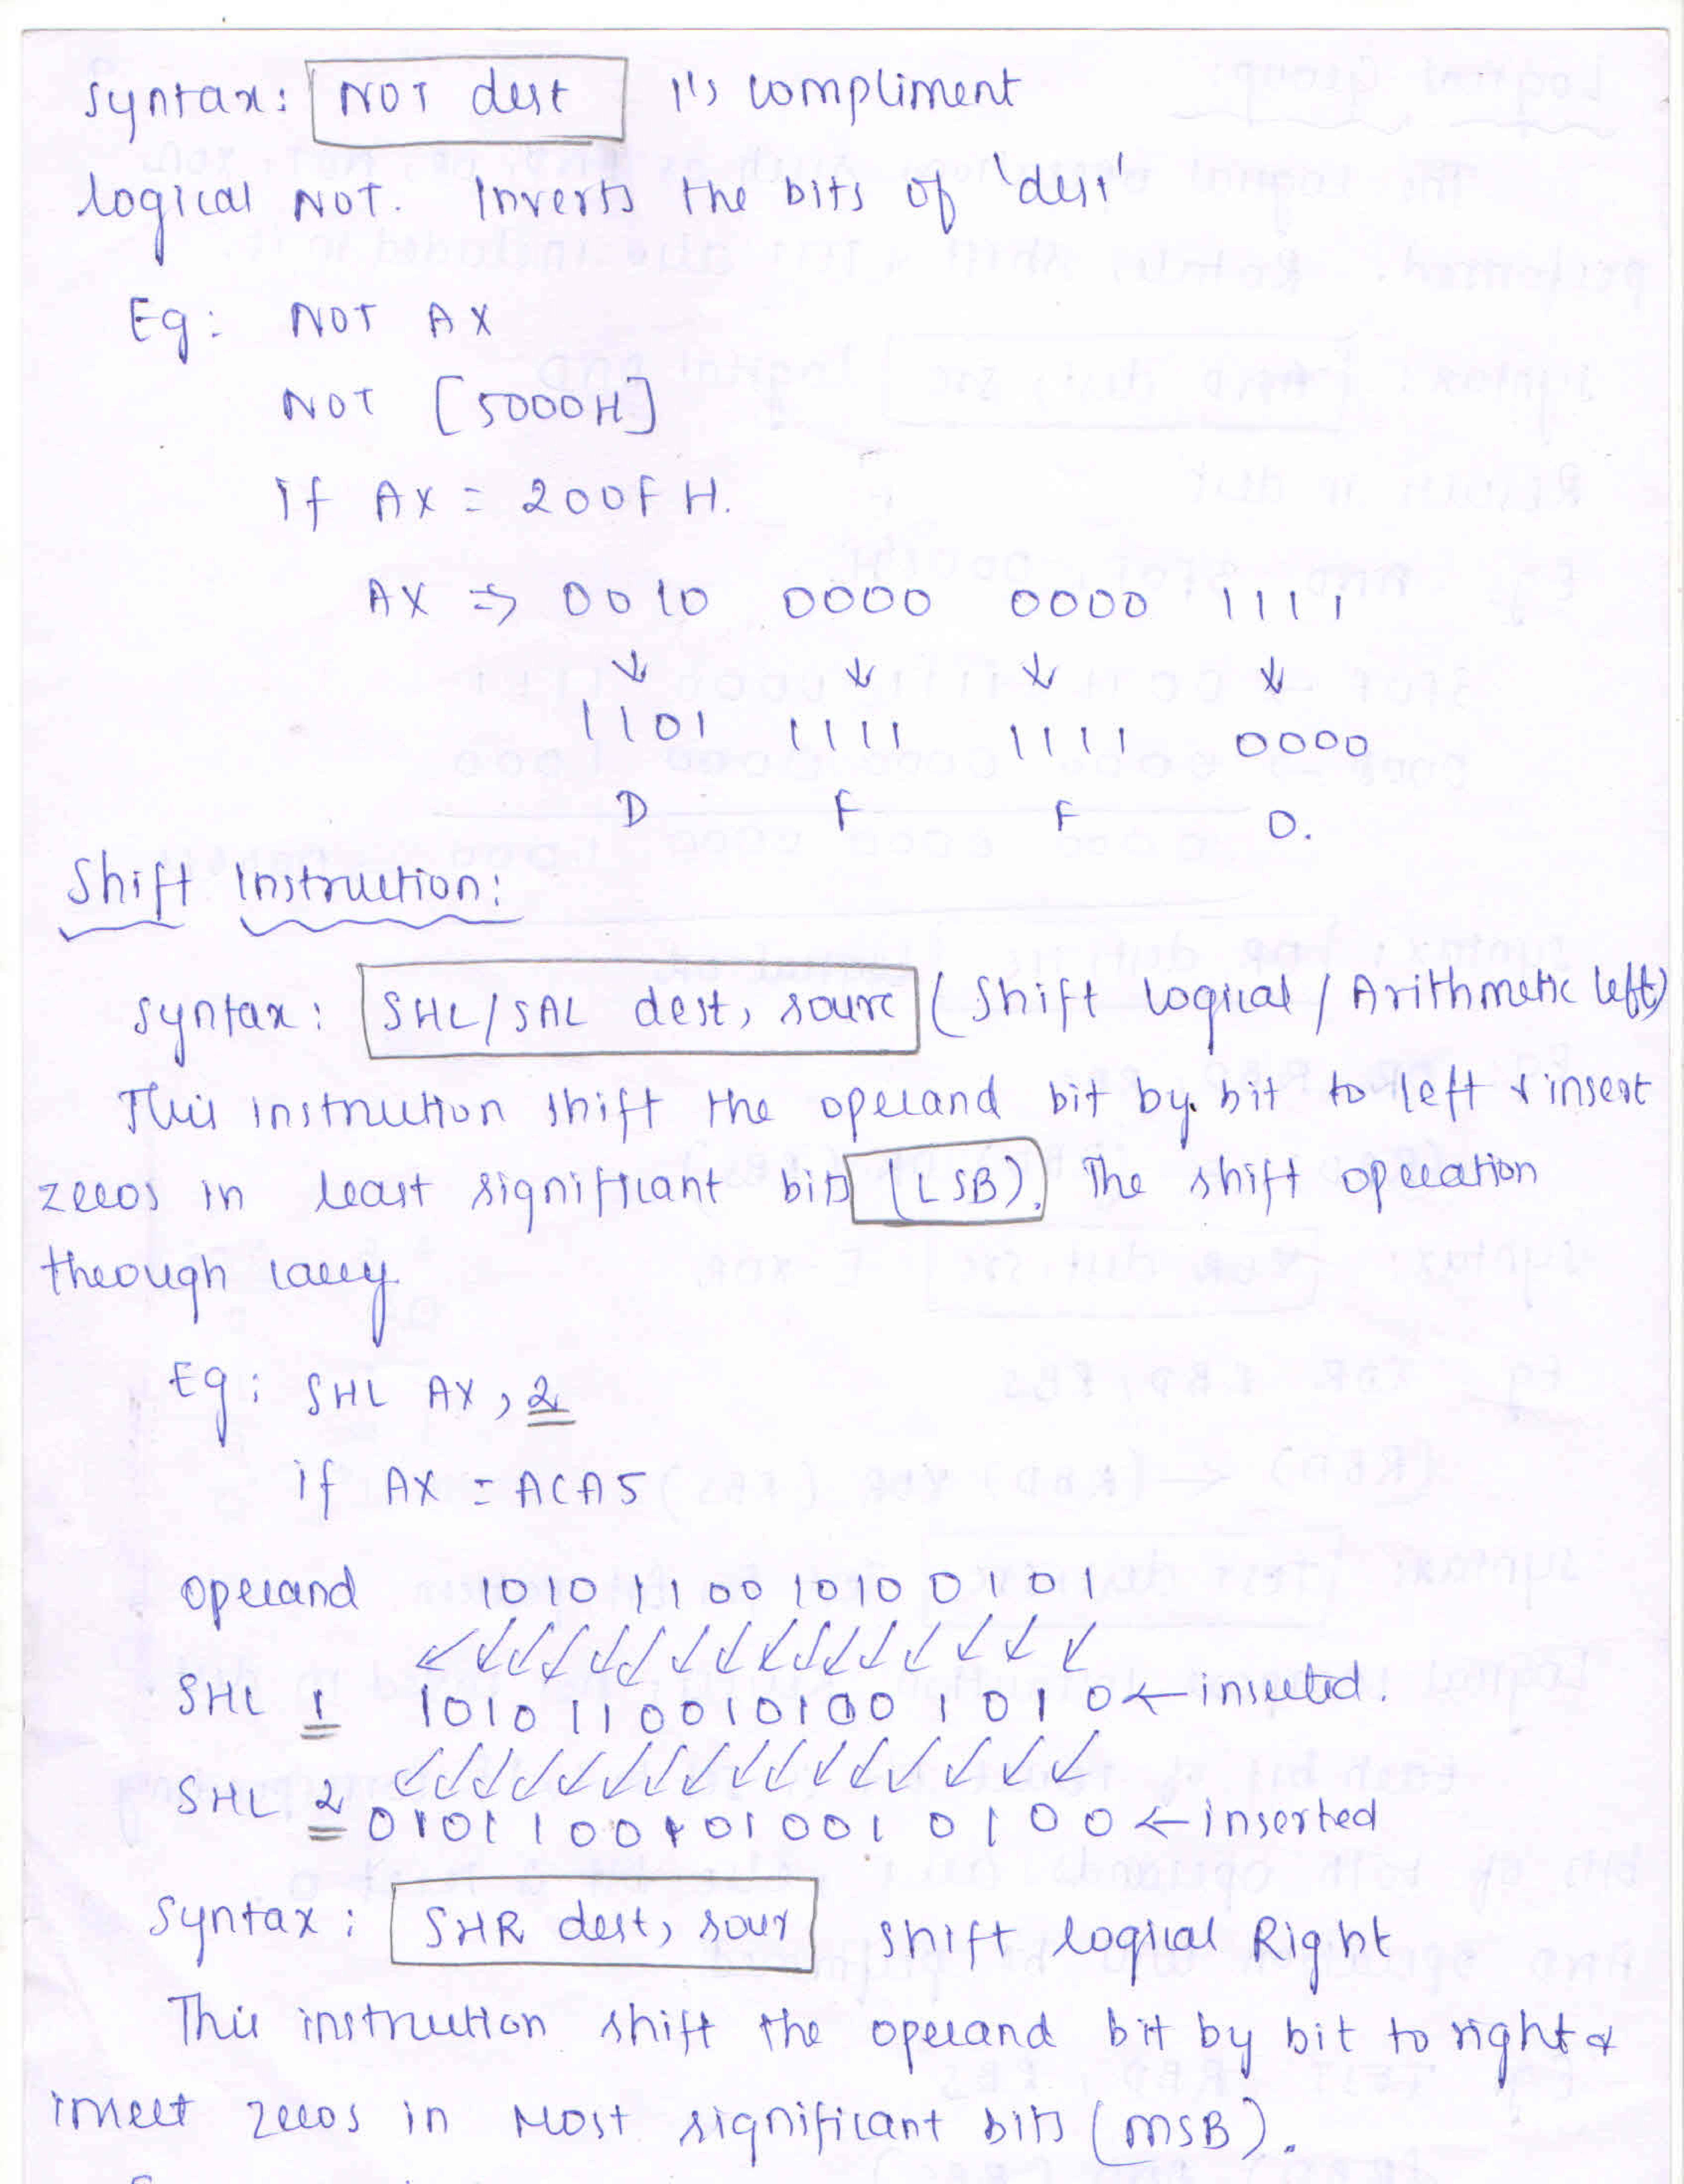 Syntax: NOT dest 1's compliment
Logical NOT. Inverts the bits of 'dest'
Eg: NOT AX
NOT [5000H]
If AX = 200F H.
AX ⇒ 0010 0000 0000 1111
↓ ↓ ↓ ↓
1101 1111 1111 0000
D F F 0.
Shift Instruction:
Syntax: SHL/SAL dest, sourc (Shift Logical / Arithmetic left)
This instruction shift the operand bit by bit to left & insert
zeros in least significant bits (LSB). The shift operation
through carry
Eg: SHL AX, 2
if AX = ACA5
operand 1010 1100 1010 0101
SHL 1 1010110010100 1010 ← inserted.
SHL 2 0101100101001 0100 ← inserted
Syntax: SHR dest, sour Shift logical Right
This instruction shift the operand bit by bit to right &
insert zeros in Most significant bits (MSB).